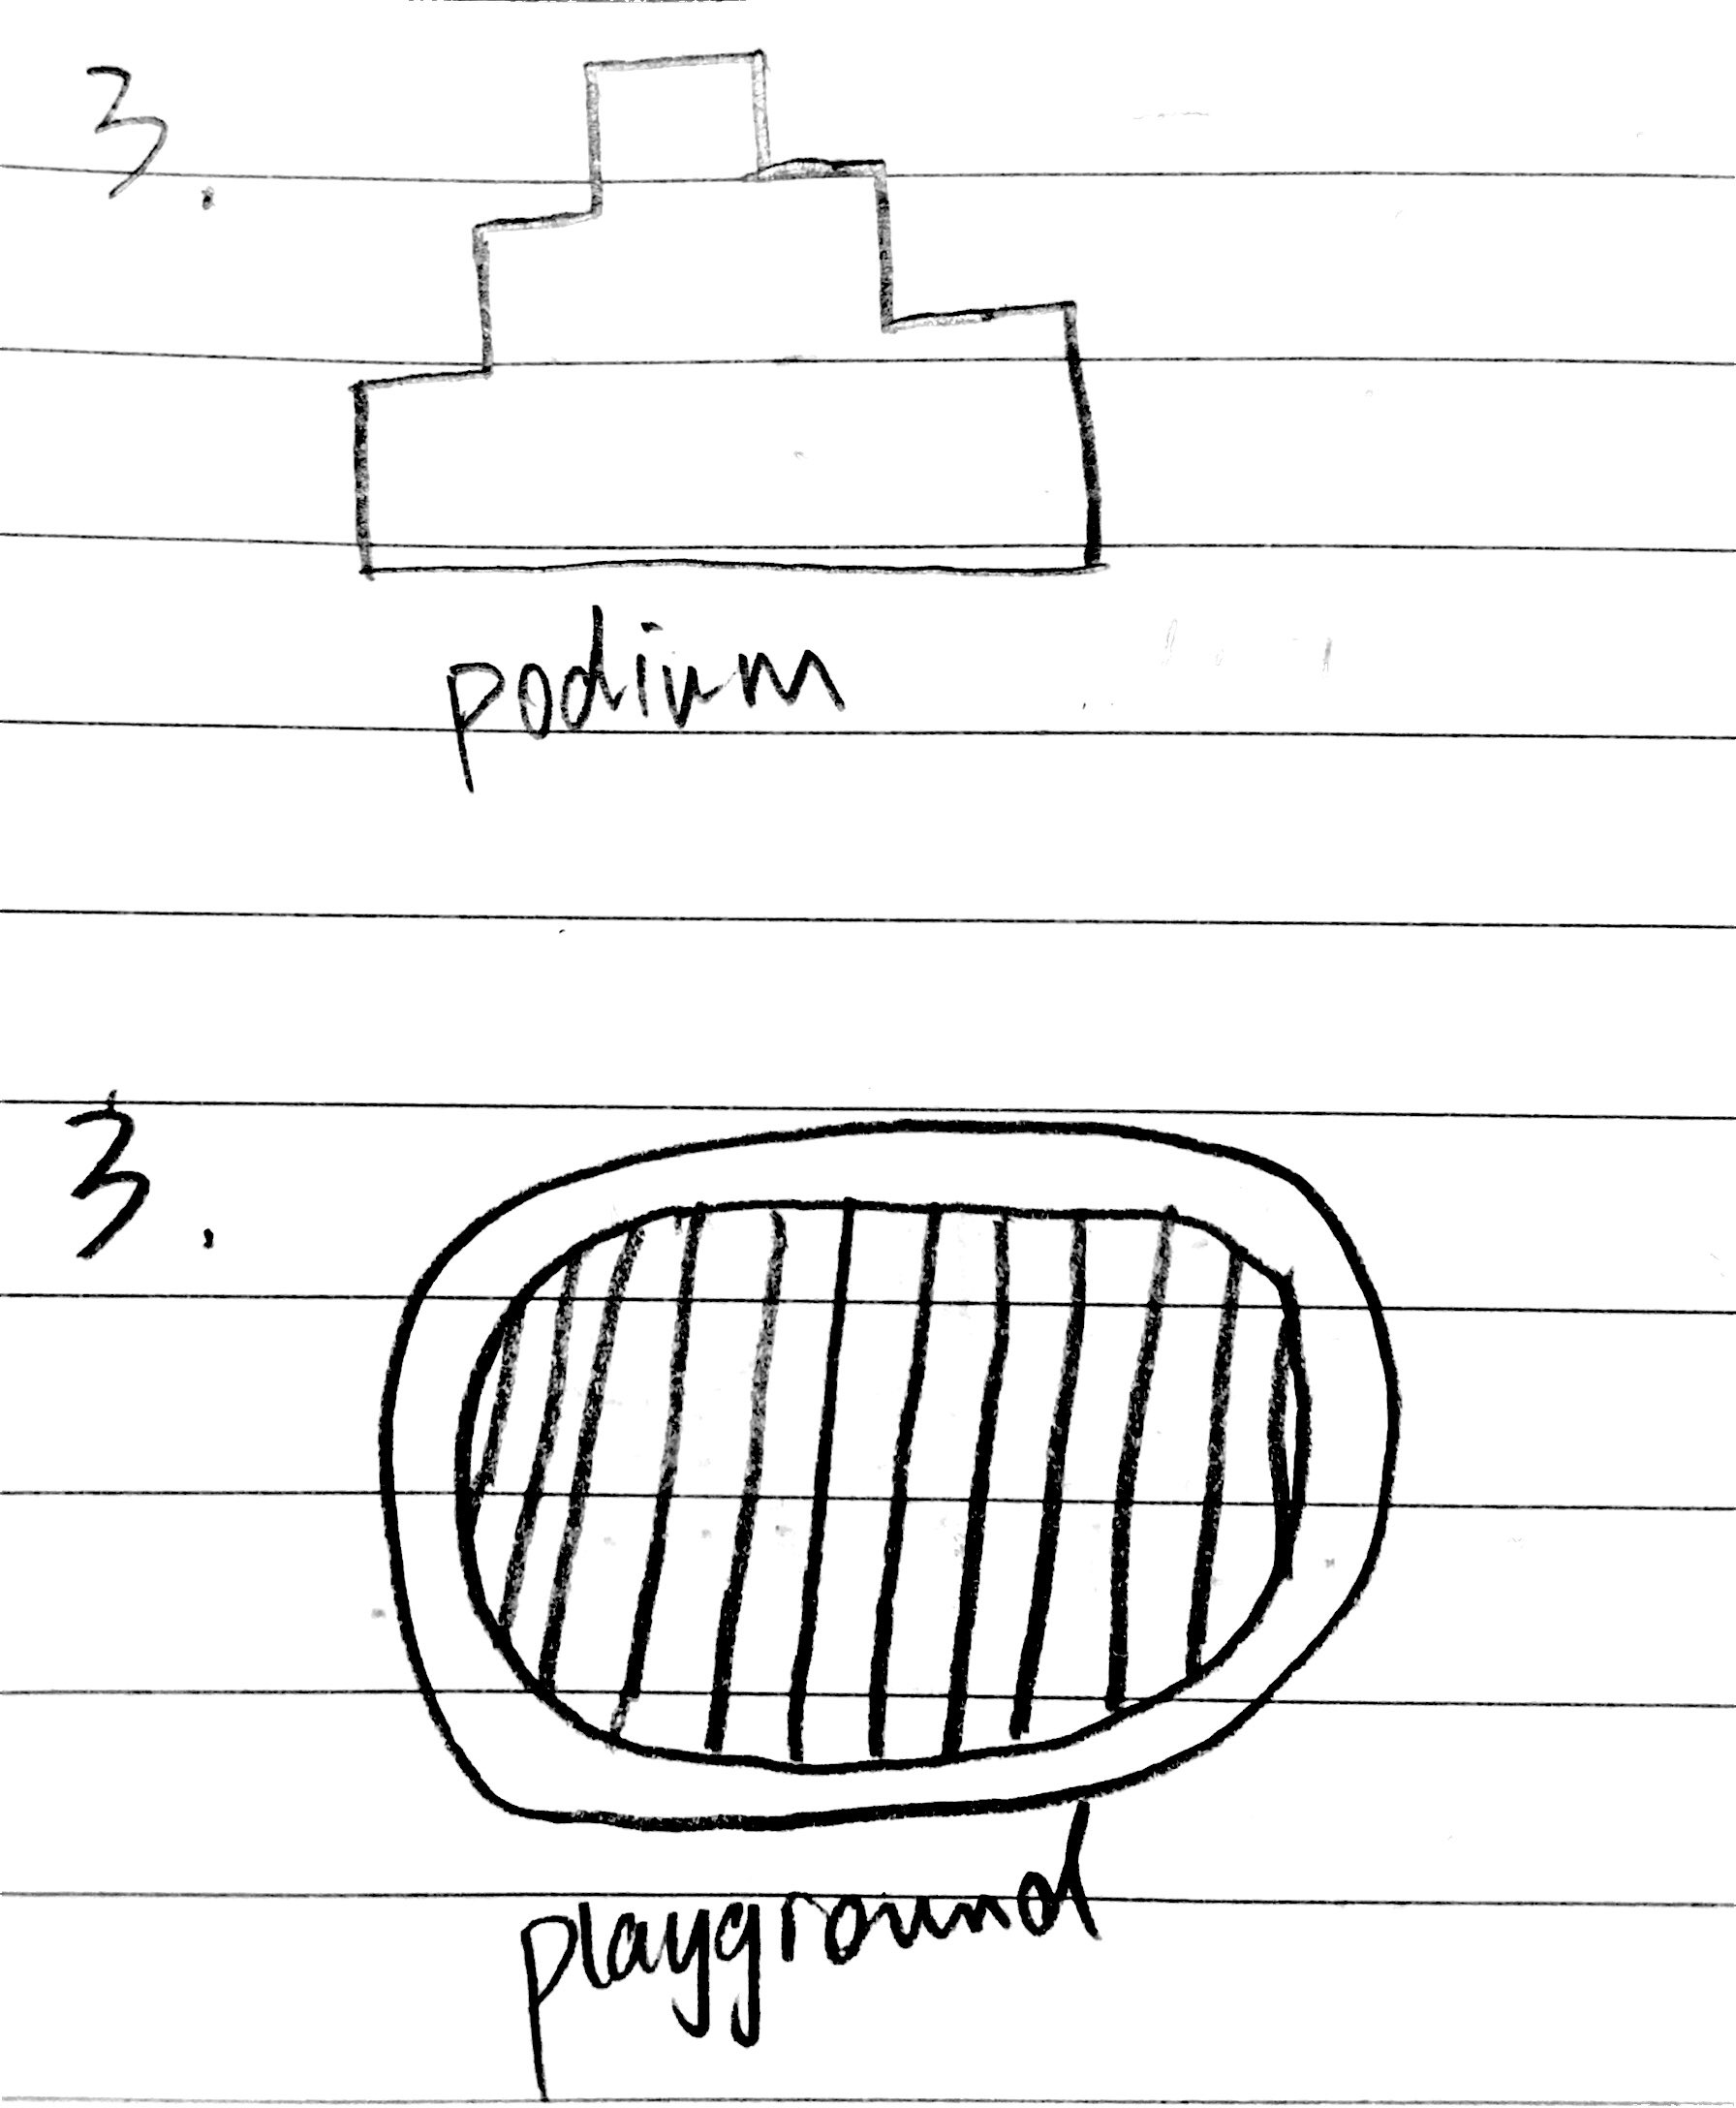 3.
podium
3.
playground